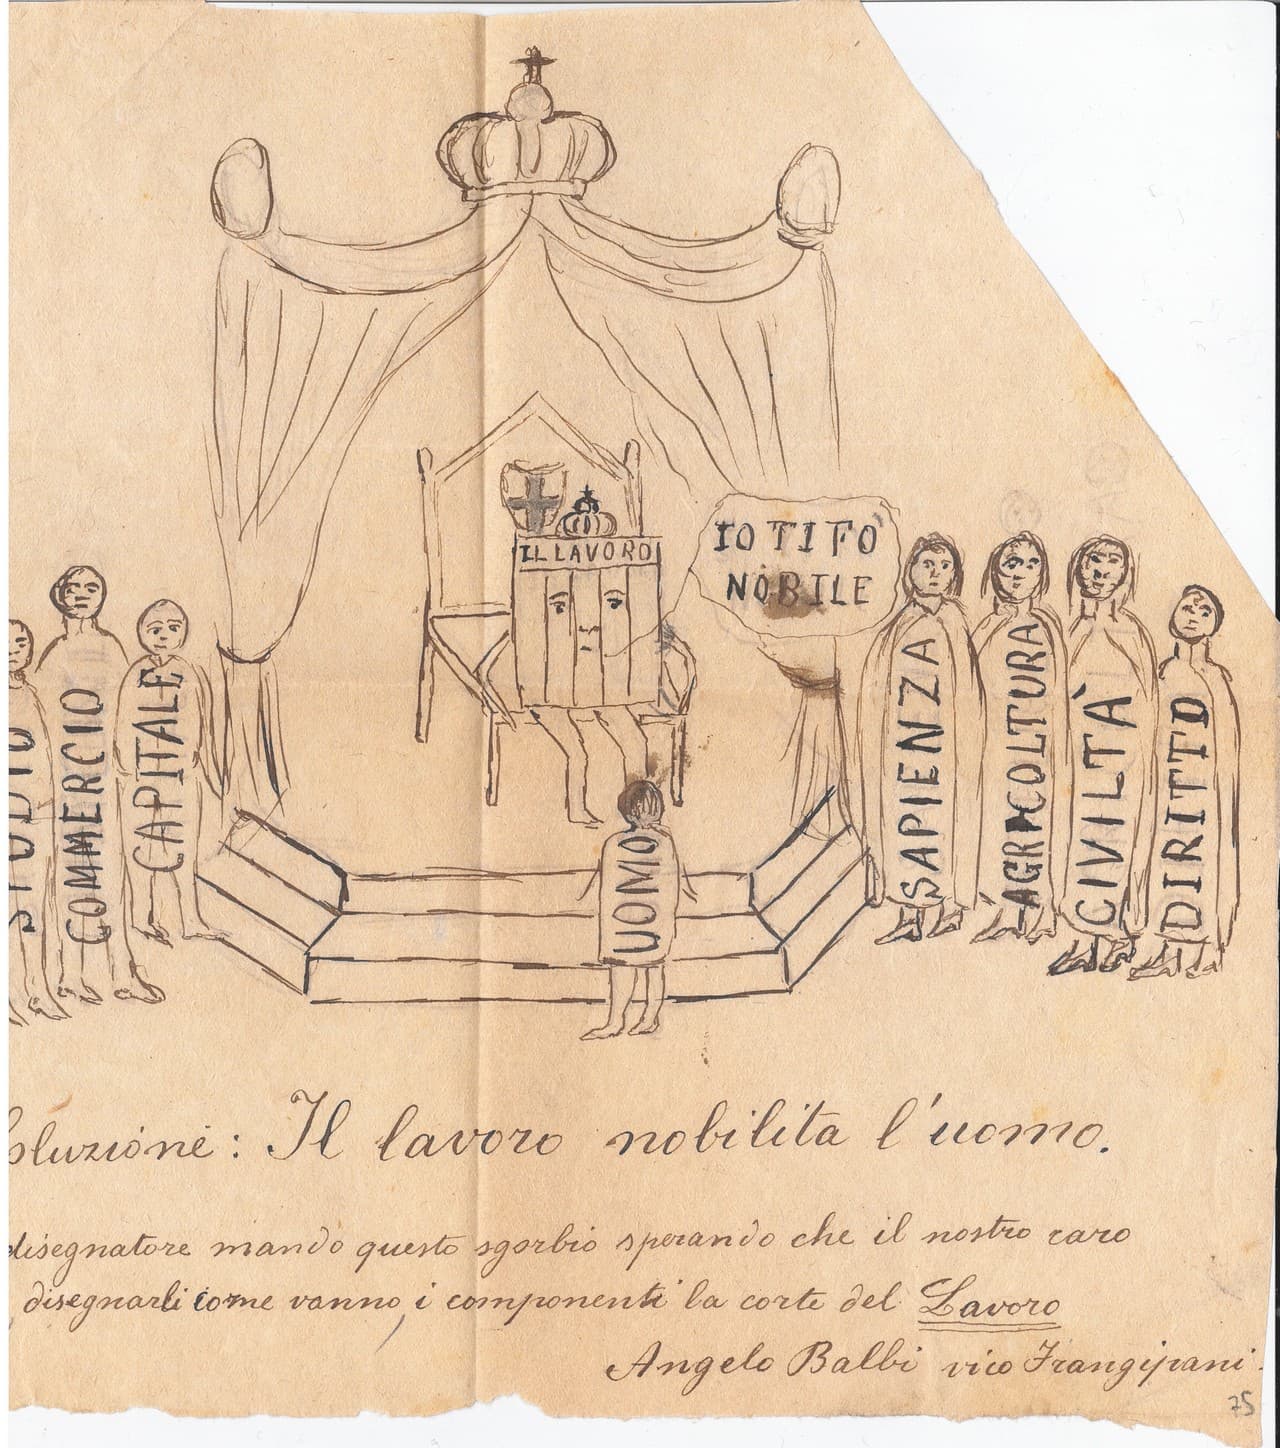 IL LAVORO
IO TI FÒ
NOBILE
STUDIO
COMMERCIO
CAPITALE
UOMO
SAPIENZA
AGRICOLTURA
CIVILTÀ
DIRITTO
oluzione: Il lavoro nobilita l'uomo.
disegnatore mando questo sgorbio sperando che il nostro caro
disegnarli come vanno, i componenti la corte del Lavoro
Angelo Balbi vico Frangipani.
75